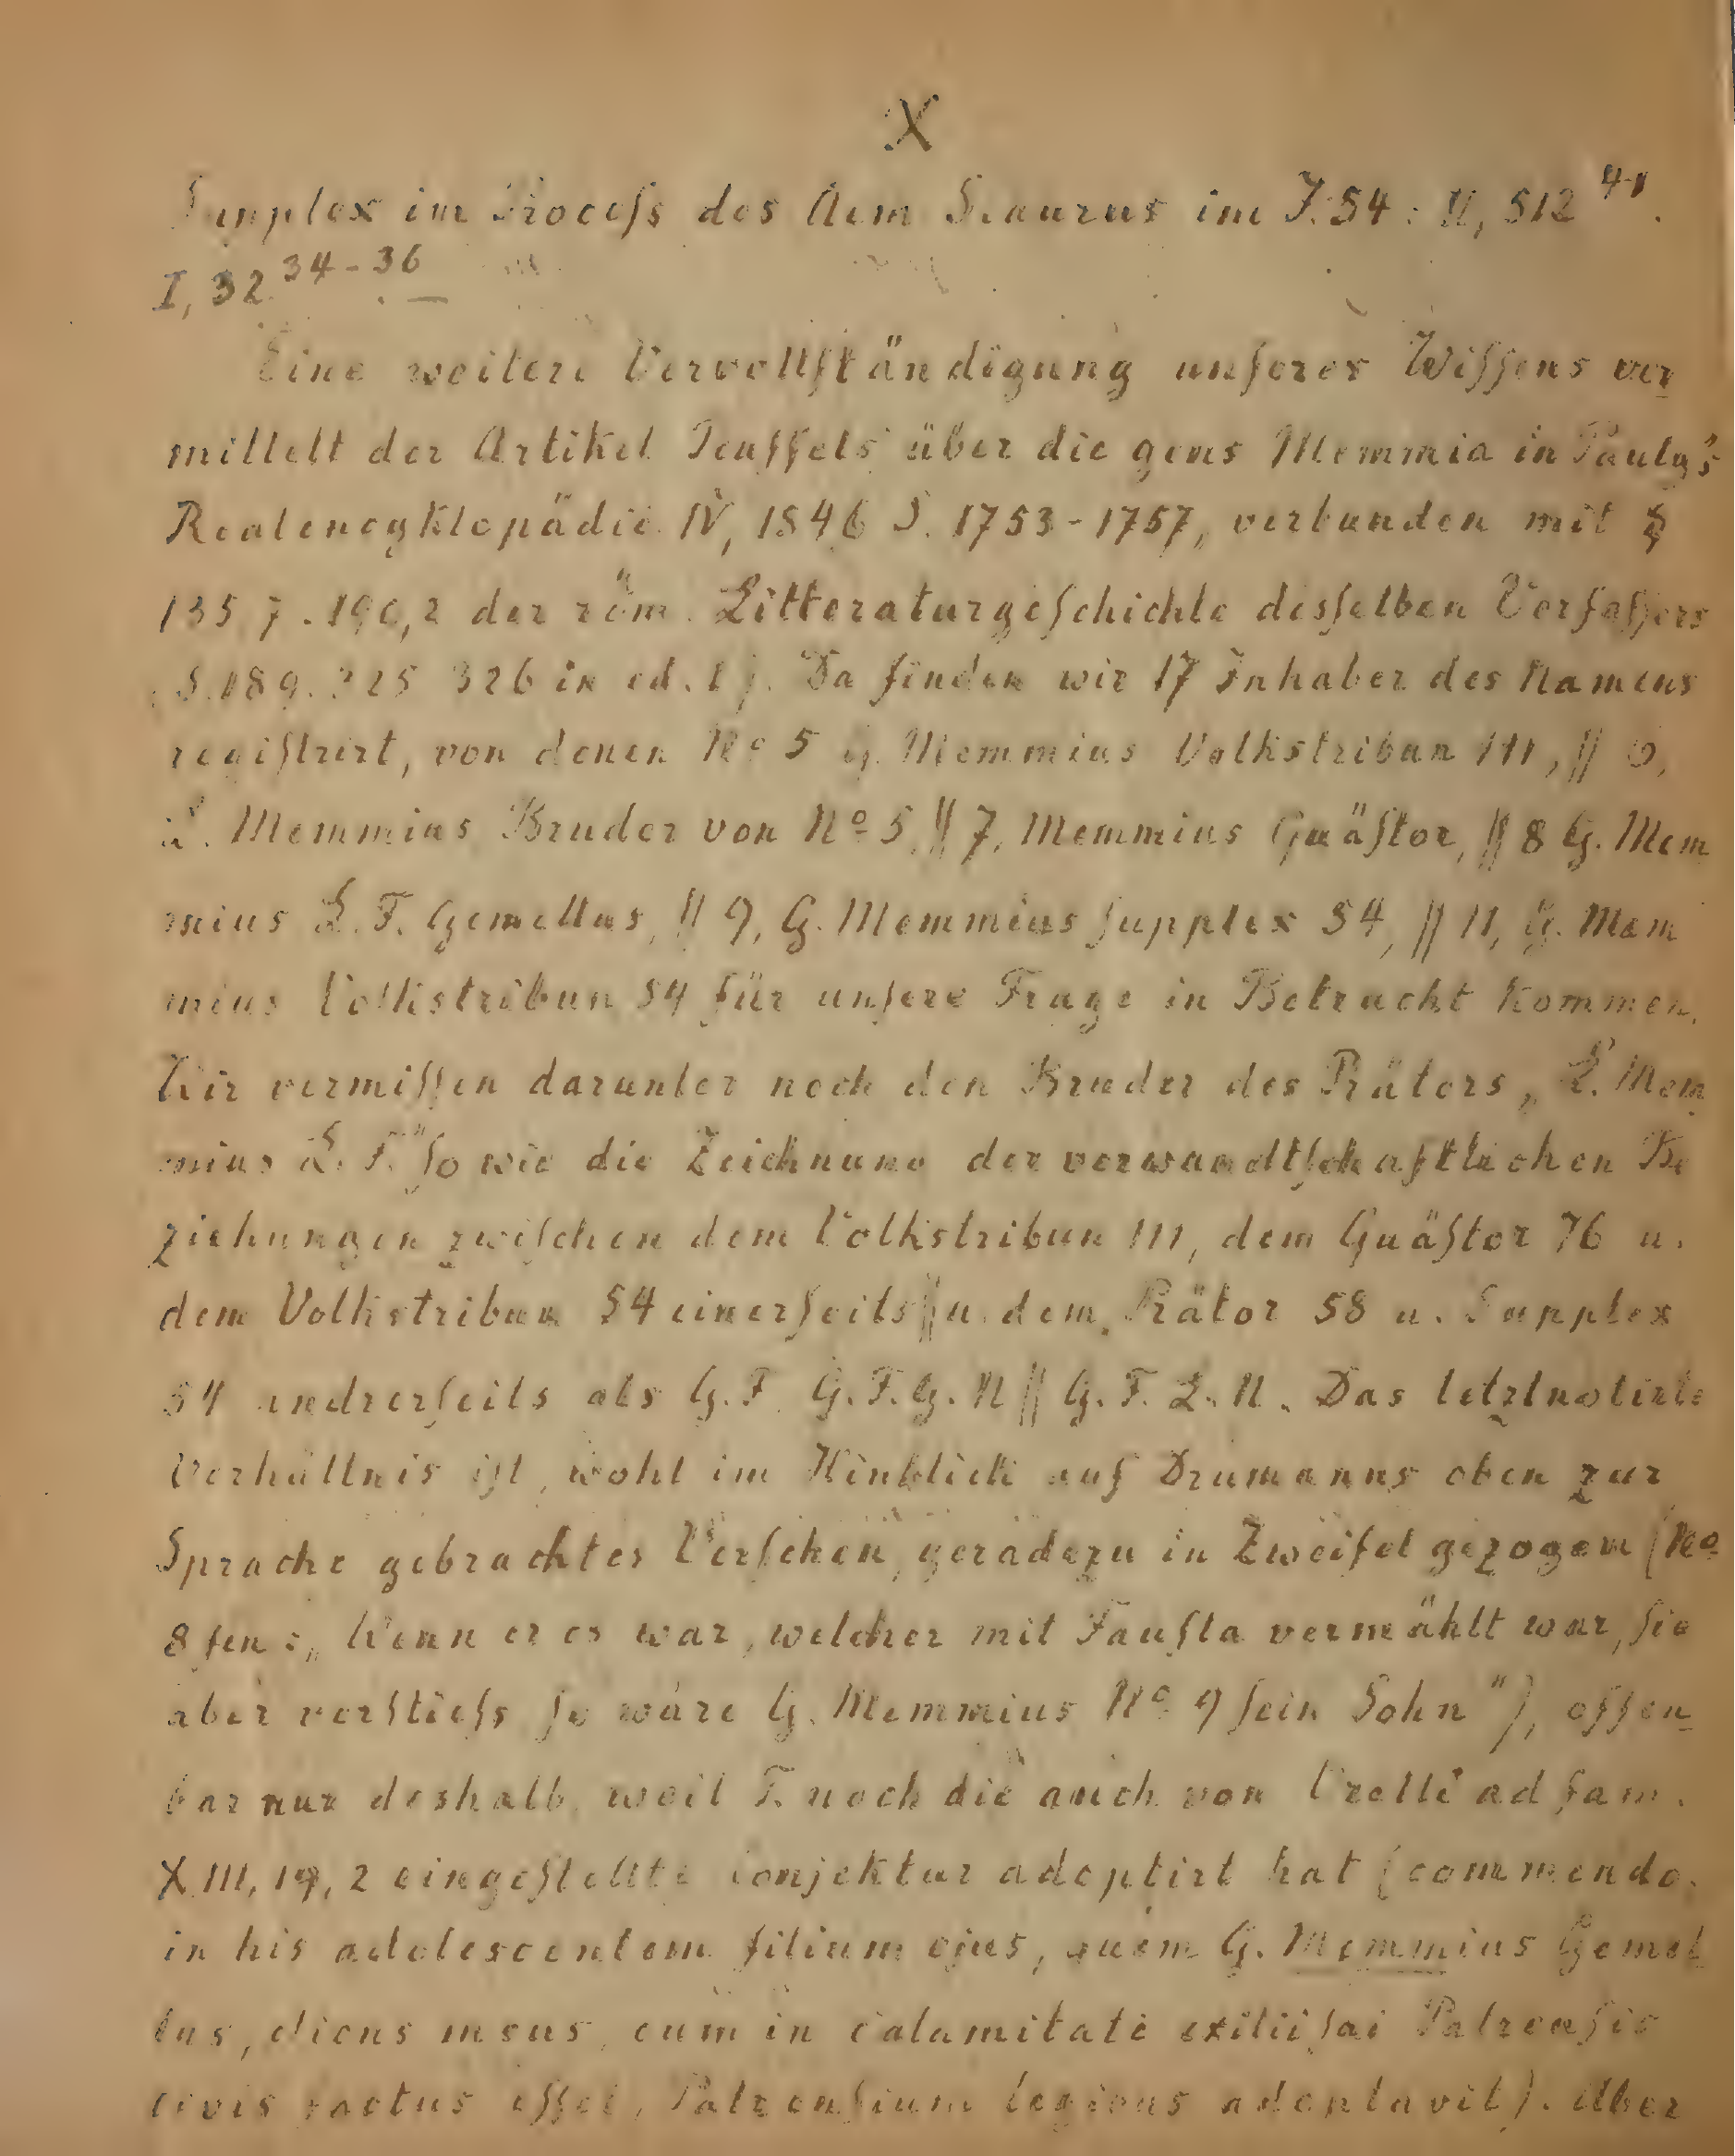 X
Supplex im Process des Aem Scaurus im J. 54 : II, 512 41.
I, 32 34-36
Eine weitere Vervollständigung unseres Wissens ver
mittelt der Artikel Teuffels über die gens Memmia in Pauly's
Realencyklopädie IV, 1846 S. 1753-1757, verbunden mit §
135 7. 190,2 der röm. Litteraturgeschichte desselben Verfassers
S. 189. 325 326 in ed. 1). Da finden wir 17 Inhaber des Namens
registrirt, von denen No 5 G. Memmius Volkstribun 111, || 6,
L. Memmius Bruder von No 5, || 7, Memmius Quästor, || 8 G. Mem
mius L. F. Gemellus, || 9, G. Memmius supplex 54, || 11, G. Mem
mius Volkstribun 54 für unsere Frage in Betracht kommen.
Wir vermissen darunter noch den Bruder des Prätors „L. Mem
mius L. F." so wie die Zeichnung der verwandtschaftlichen Be
ziehungen zwischen dem Volkstribun 111, dem Quästor 76 u.
dem Volkstribun 54 einerseits || u. dem Prätor 58 u. Supplex
54 andrerseits als G. F. G. F. G. N || G. F. L. N. Das letztnotirte
Verhältnis ist, wohl im Hinblick auf Drumanns oben zur
Sprache gebrachtes Versehen, geradezu in Zweifel gezogen (No
8 fen: „Wenn er es war, welcher mit Fausta vermählt war, sie
aber verstiess so wäre G. Memmius No 9 sein Sohn"), offen
bar nur deshalb, weil T. noch die auch von Orelli ad fam.
XIII, 19, 2 eingestellte Conjektur adoptirt hat (commendo
in his adolescentem filium ejus, quem G. Memmius Gemel
lus, cliens meus, cum in calamitate exilii sui Patrensis
civis factus esset, Patrensium legibus adoptavit). Aber